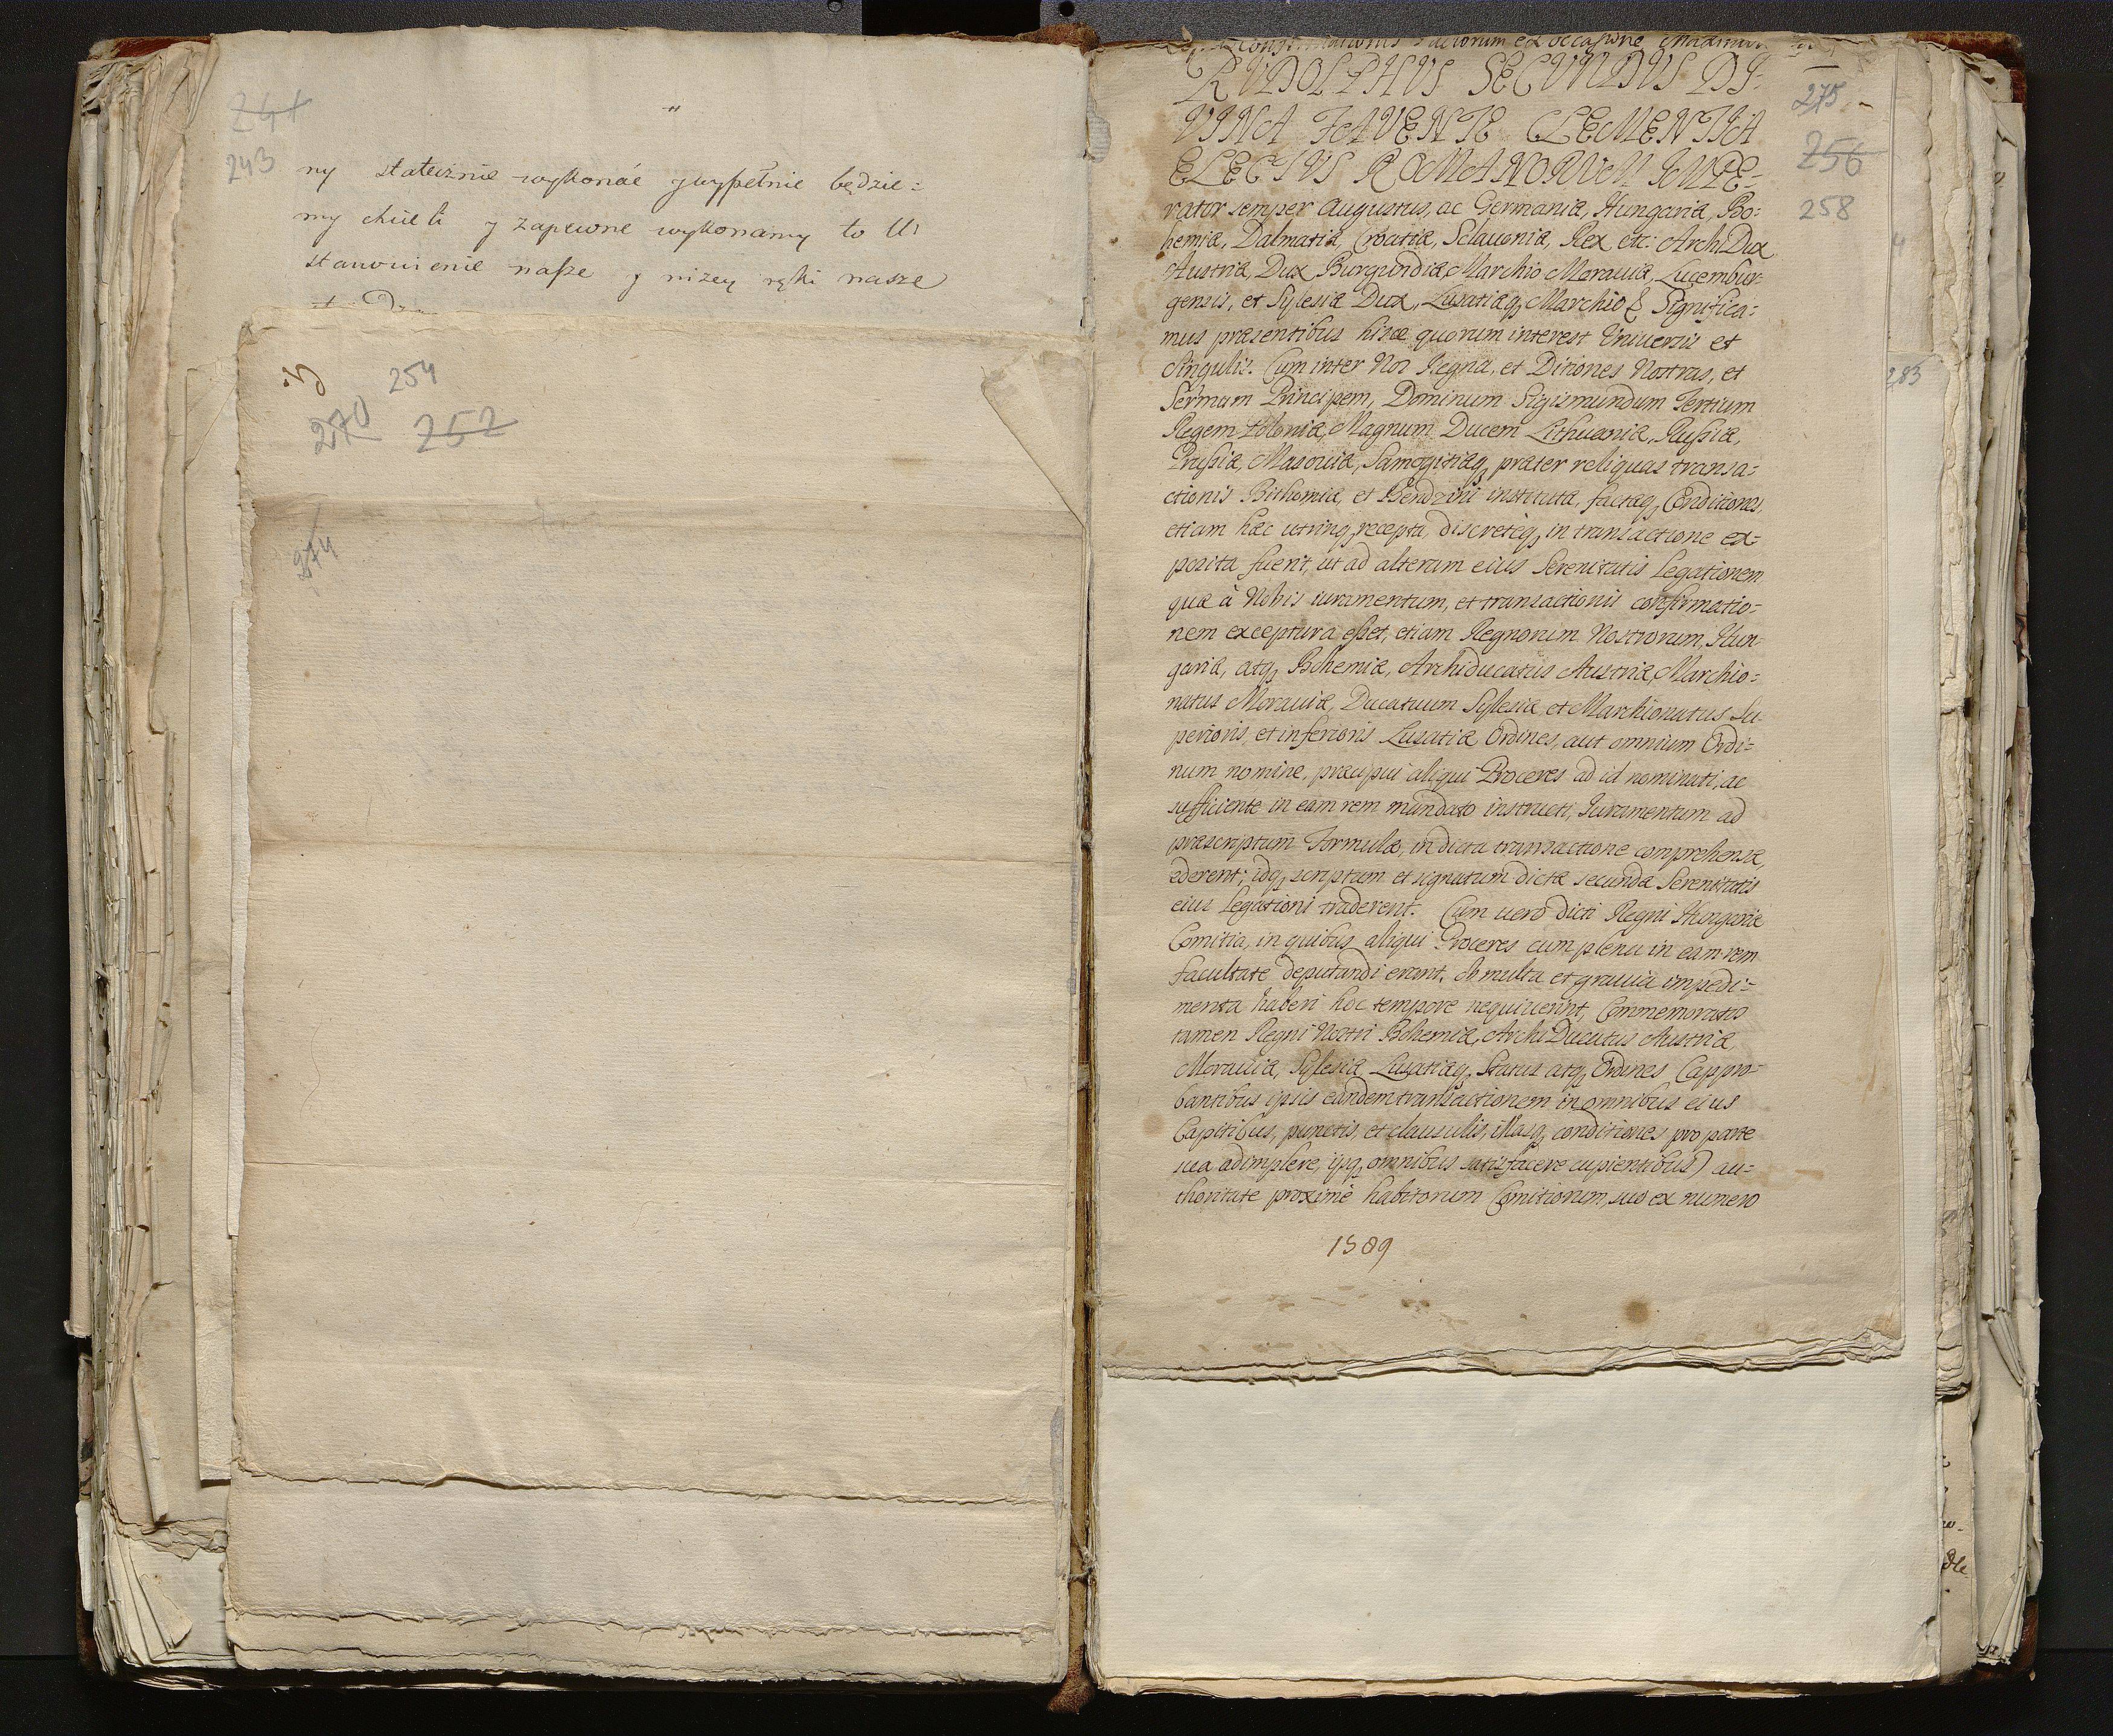 241
243
ny statecznie wykonać y wypełnie będzie=
my chcieli y zapewne wykonamy to U
stanowienie nasze y niżey ręki nasze
254
270 252
274
Confirmationis Pactorum ex occasione
RVDOLPHVS SECVNDVS DI-
VINA FAVENTE CLEMENTIA
ELECTVS ROMANORVM IMPE-
rator semper Augustus, ac Germaniæ, Hungariæ, Bo=
hemiæ, Dalmatiæ, Croatiæ, Sclauoniæ, Rex etc: ArchiDux
Austriæ, Dux Burgundiæ, Marchio Morauiæ, Lucembur-
gensis, et Sylesiæ Dux, Lusatiæq, Marchio & Significa=
mus præsentibus hisce quorum interest Vniuersis et
Singulis. Cum inter Nos Regna, et Ditiones Nostras, et
Sermum Principem, Dominum Sigismundum Tertium
Regem Poloniæ, Magnum Ducem Lithuaniæ, Rußiæ,
Prußiæ, Masouiæ, Samogitiæq, præter reliquas transa=
ctionis Bithomiæ, et Bendzini institutæ, factæq, Conditiones,
etiam hæc utrinq, recepta, discreteq, in transactione ex-
posita fuerit, ut ad alteram eius Serenitatis Legationem
quæ à Nobis iuramentum, et transactionis confirmatio=
nem exceptura eßet, etiam Regnorum Nostrorum, Hun-
gariæ, atq, Bohemiæ, Archiducatus Austriæ, Marchio=
natus Morauiæ, Ducatuum Sylesiæ et Marchionatus Su
perioris, et inferioris Lusatiæ Ordines, aut omnium Ordi=
num nomine, præcipui aliqui Proceres ad id nominati, ac
sufficiente in eam rem mandato instructi, Iuramentum ad
præscriptum Formulæ, in dicta transactione comprehensæ,
ederent; idq, scriptum et signatum dictæ secundæ Serenitatis
eius Legationi traderent. Cum uero dicti Regni Hungariæ
Comitia, in quibus aliqui Proceres cum plena in eam rem
facultate deputandi erant, ob multa et grauia impedi=
menta haberi hoc tempore nequiuerint, Commemoratos
tamen Regni Nostri Bohemiæ, ArchiDucatus Austriæ,
Morauiæ, Sylesiæ, Lusatiæq, Status atq, Ordines (appro-
bantibus ipsis eandem transactionem in omnibus eius
Capitibus, punctis, et clausulis, illasq, conditiones pro parte
sua adimplere, ijsq, omnibus satisfacere cupientibus) au=
thoritate proxime habitorum Comitiorum, suo ex numero
1589
275
256
258
283